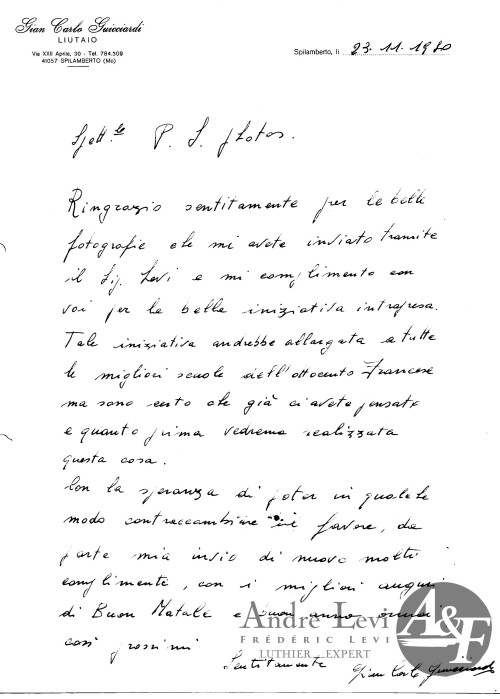 Gian Carlo Guicciardi
LIUTAIO
Via XXII Aprile, 30 - Tel. 784.309
41057 SPILAMBERTO (Mo)
Spilamberto, li 23.11.1980
Spett.le P. S. Photos.
Ringrazio sentitamente per le belle
fotografie che mi avete inviato tramite
il Sig. Levi e mi complimento con
voi per la bella iniziativa intrapresa.
Tale iniziativa andrebbe allargata a tutte
le migliori scuole dell'ottocento Francese
ma sono certo che già ci avete pensato
e quanto prima vedremo realizzata
questa cosa.
Con la speranza di poter in qualche
modo contraccambiare il favore, da
parte mia invio di nuovo molti
complimenti, con i migliori auguri
di Buon Natale e buon anno ormai
così prossimi
Sentitamente Gian Carlo Guicciardi
Andre Levi
FRÉDÉRIC LEVI
LUTHIER - EXPERT
A&F